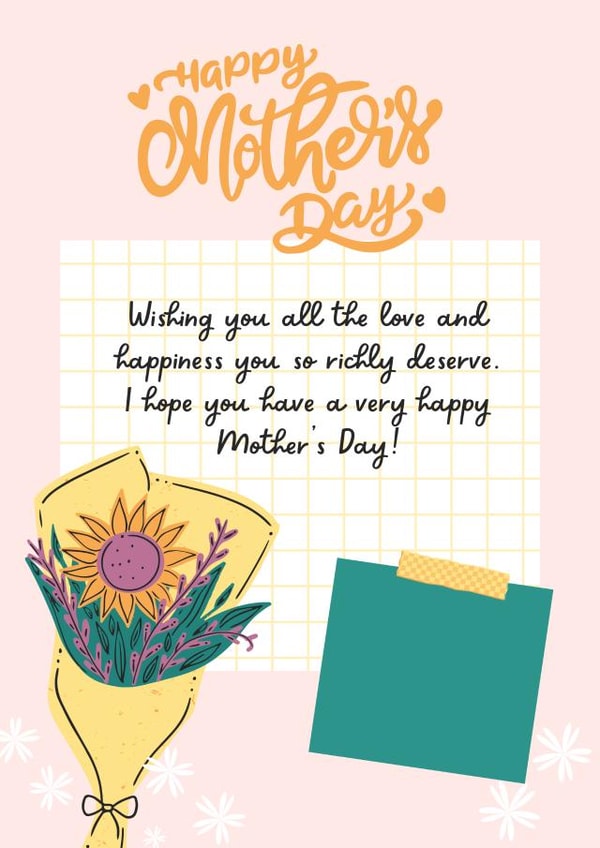 Happy
Mother's
Day
Wishing you all the love and
happiness you so richly deserve.
I hope you have a very happy
Mother's Day!